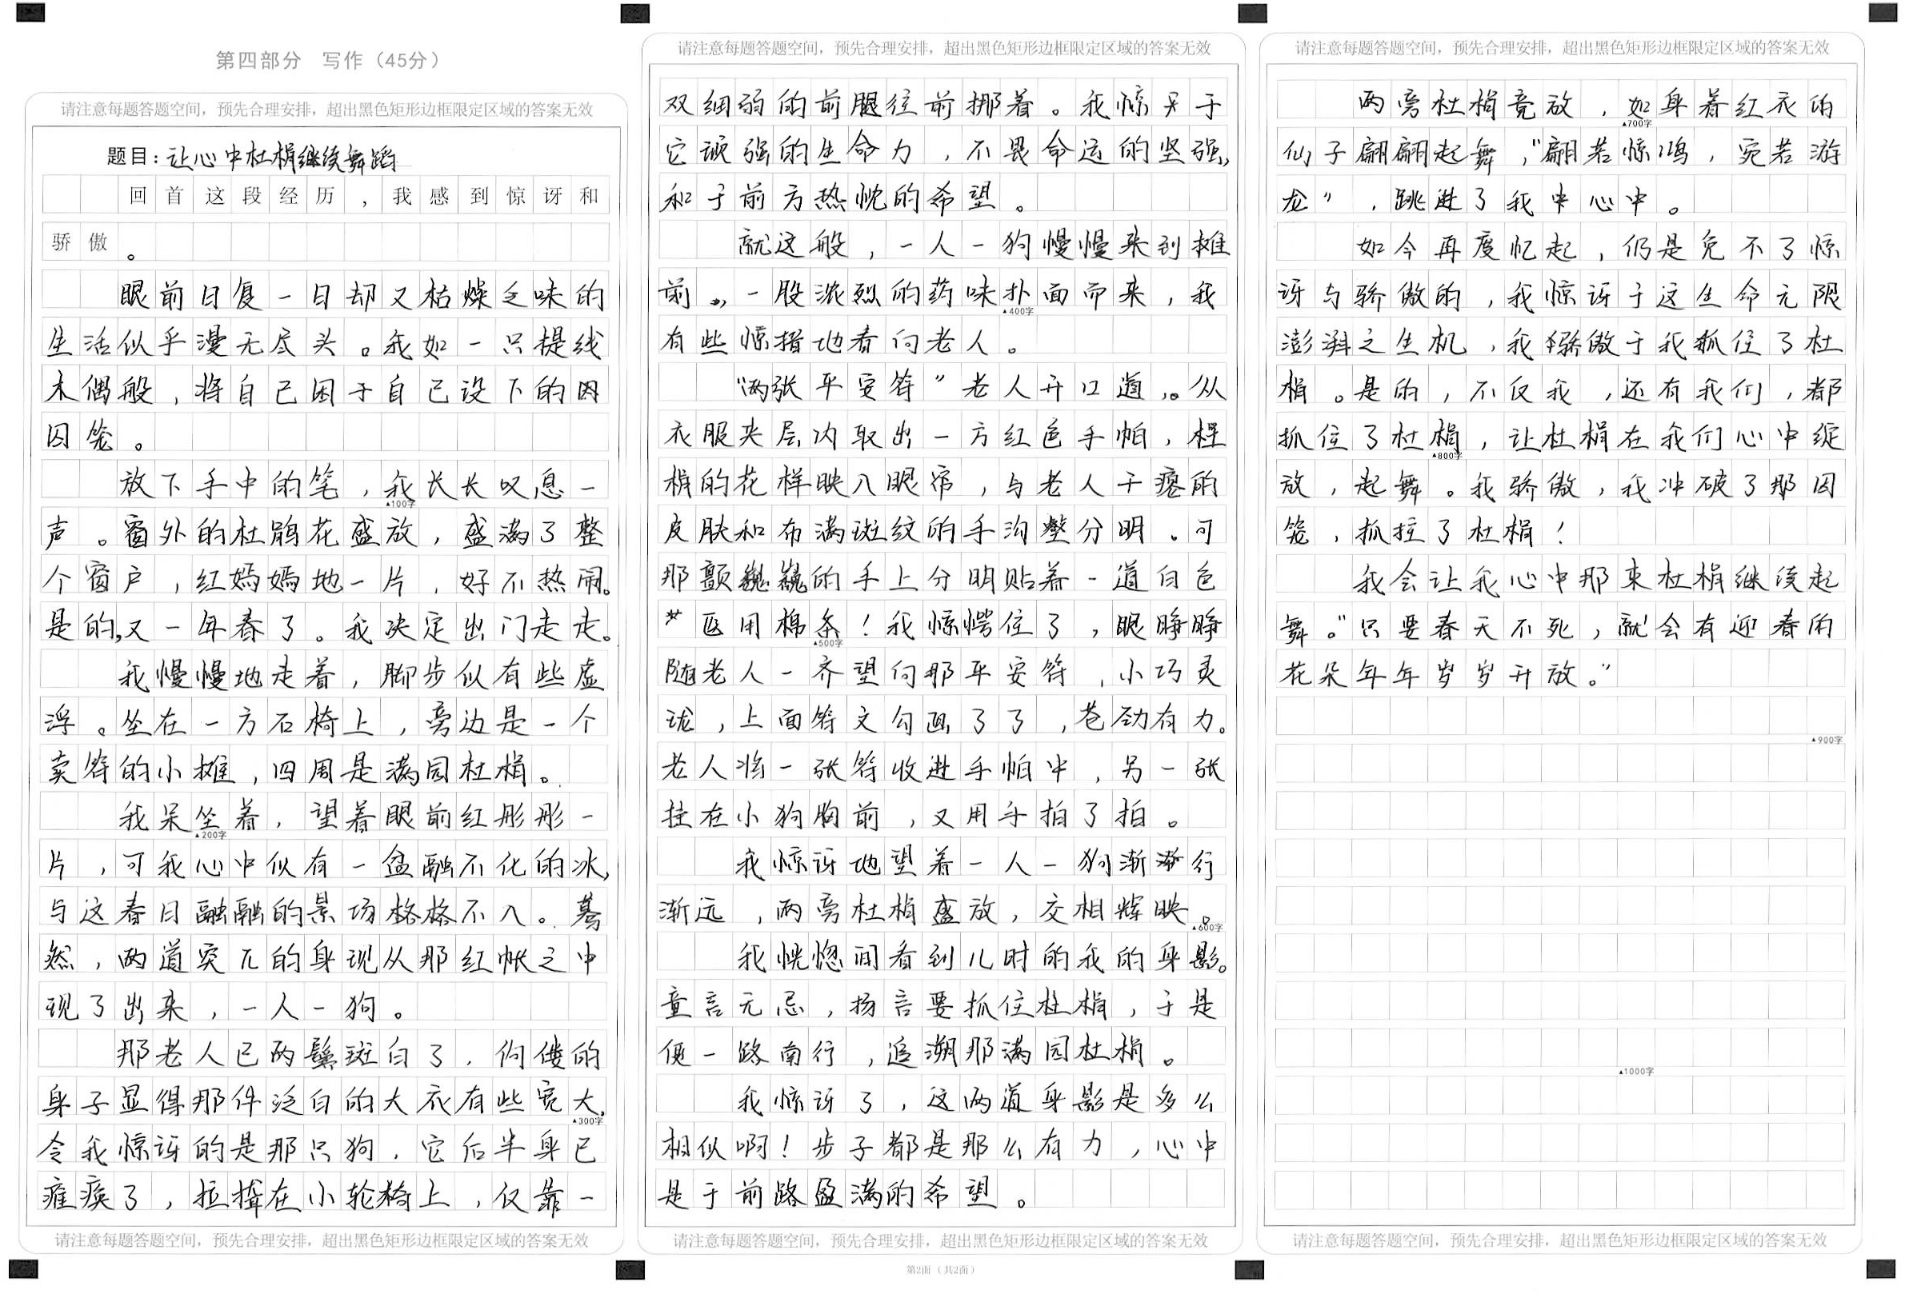 第四部分 写作（45分）
请注意每题答题空间，预先合理安排，超出黑色矩形边框限定区域的答案无效
题目：让心中杜鹃继续舞蹈
回首这段经历，我感到惊讶和
骄傲。
眼前日复一日却又枯燥乏味的
生活似乎漫无尽头。我如一只提线
木偶般，将自己困于自己设下的囚
囚笼。
放下手中的笔，我长长叹息一
▲100字
声。窗外的杜鹃花盛放，盛满了整
个窗户，红嫣嫣地一片，好不热闹。
是的，又一年春了。我决定出门走走。
我慢慢地走着，脚步似有些虚
浮。坐在一方石椅上，旁边是一个
卖符的小摊，四周是满园杜鹃。
我呆坐着，望着眼前红彤彤一
▲200字
片，可我心中似有一盆融不化的冰，
与这春日融融的景场格格不入。蓦
然，两道突兀的身现从那红帐之中
现了出来，一人一狗。
那老人已两鬓斑白了，佝偻的
身子显得那件泛白的大衣有些宽大，
▲300字
令我惊讶的是那只狗，它后半身已
瘫痪了，拉耸在小轮椅上，仅靠一
请注意每题答题空间，预先合理安排，超出黑色矩形边框限定区域的答案无效
请注意每题答题空间，预先合理安排，超出黑色矩形边框限定区域的答案无效
双细弱的前腿往前挪着。我惊于
它顽强的生命力，不畏命运的坚强，
和于前方热忱的希望。
就这般，一人一狗慢慢来到摊
前，一股浓烈的药味扑面而来，我
▲400字
有些惊措地看向老人。
“两张平安符”老人开口道。从
衣服夹层内取出一方红色手帕，杜
鹃的花样映入眼帘，与老人干瘪的
皮肤和布满斑纹的手沟壑分明。可
那颤巍巍的手上分明贴着一道白色
医用棉条！我惊愕住了，眼睁睁
▲500字
随老人一齐望向那平安符，小巧灵
珑，上面符文勾画了了，苍劲有力。
老人将一张符收进手帕中，另一张
挂在小狗胸前，又用手拍了拍。
我惊讶地望着一人一狗渐渐行
渐远，两旁杜鹃盛放，交相辉映。
▲600字
我恍惚间看到儿时的我的身影。
童言无忌，扬言要抓住杜鹃，于是
便一路南行，追溯那满园杜鹃。
我惊讶了，这两道身影是多么
相似啊！步子都是那么有力，心中
是于前路盈满的希望。
请注意每题答题空间，预先合理安排，超出黑色矩形边框限定区域的答案无效
第2面（共2面）
请注意每题答题空间，预先合理安排，超出黑色矩形边框限定区域的答案无效
两旁杜鹃竞放，如身着红衣的
▲700字
仙子翩翩起舞，“翩若惊鸿，宛若游
龙”，跳进了我中心中。
如今再度忆起，仍是免不了惊
讶与骄傲的，我惊讶于这生命无限
澎湃之生机，我骄傲于我抓住了杜
鹃。是的，不仅我，还有我们，都
抓住了杜鹃，让杜鹃在我们心中绽
▲800字
放，起舞。我骄傲，我冲破了那囚
笼，抓拉了杜鹃！
我会让我心中那束杜鹃继续起
舞。“只要春天不死，就会有迎春的
花朵年年岁岁开放。”
▲900字
▲1000字
请注意每题答题空间，预先合理安排，超出黑色矩形边框限定区域的答案无效